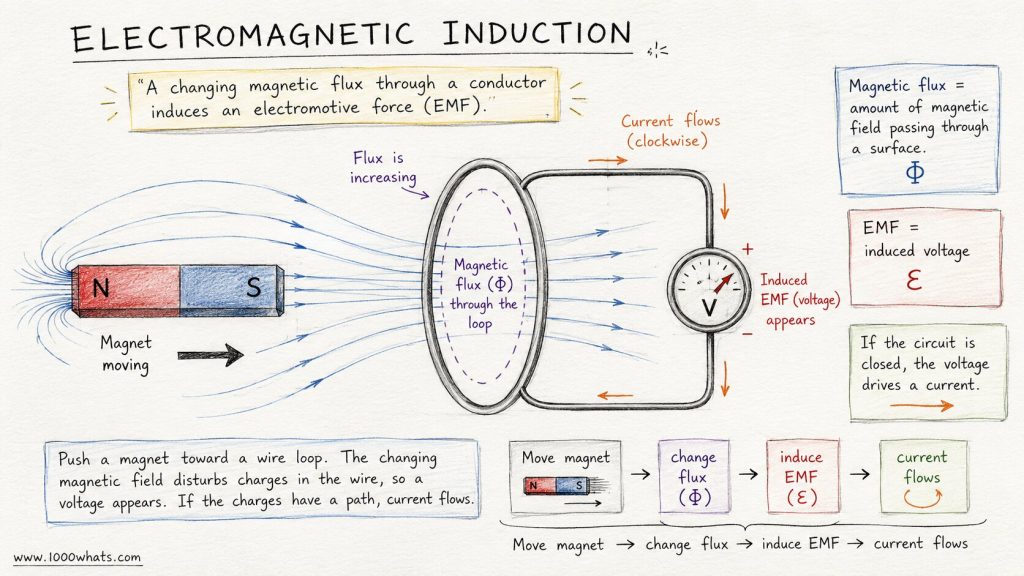 ELECTROMAGNETIC INDUCTION
"A changing magnetic flux through a conductor
induces an electromotive force (EMF)."
Flux is
increasing
Current flows
(clockwise)
Magnetic flux =
amount of magnetic
field passing through
a surface.
Φ
N
S
Magnetic
flux (Φ)
through the
loop
+
V
−
Induced
EMF (voltage)
appears
EMF =
induced voltage
ε
Magnet
moving
If the circuit is
closed, the voltage
drives a current.
Push a magnet toward a wire loop. The changing
magnetic field disturbs charges in the wire, so a
voltage appears. If the charges have a path, current flows.
Move magnet
N
S
→
change
flux
(Φ)
→
induce
EMF
(ε)
→
current
flows
Move magnet → change flux → induce EMF → current flows
www.1000whats.com